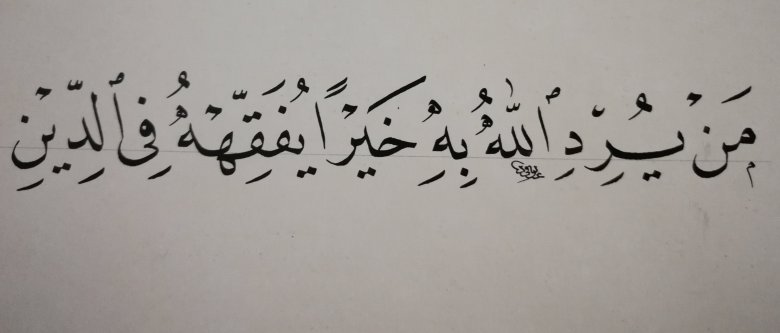 مَنْ يُرِدِ ٱللّٰهُ بِهِ خَيْرًا يُفَقِّهْهُ فِي ٱلدِّينِ